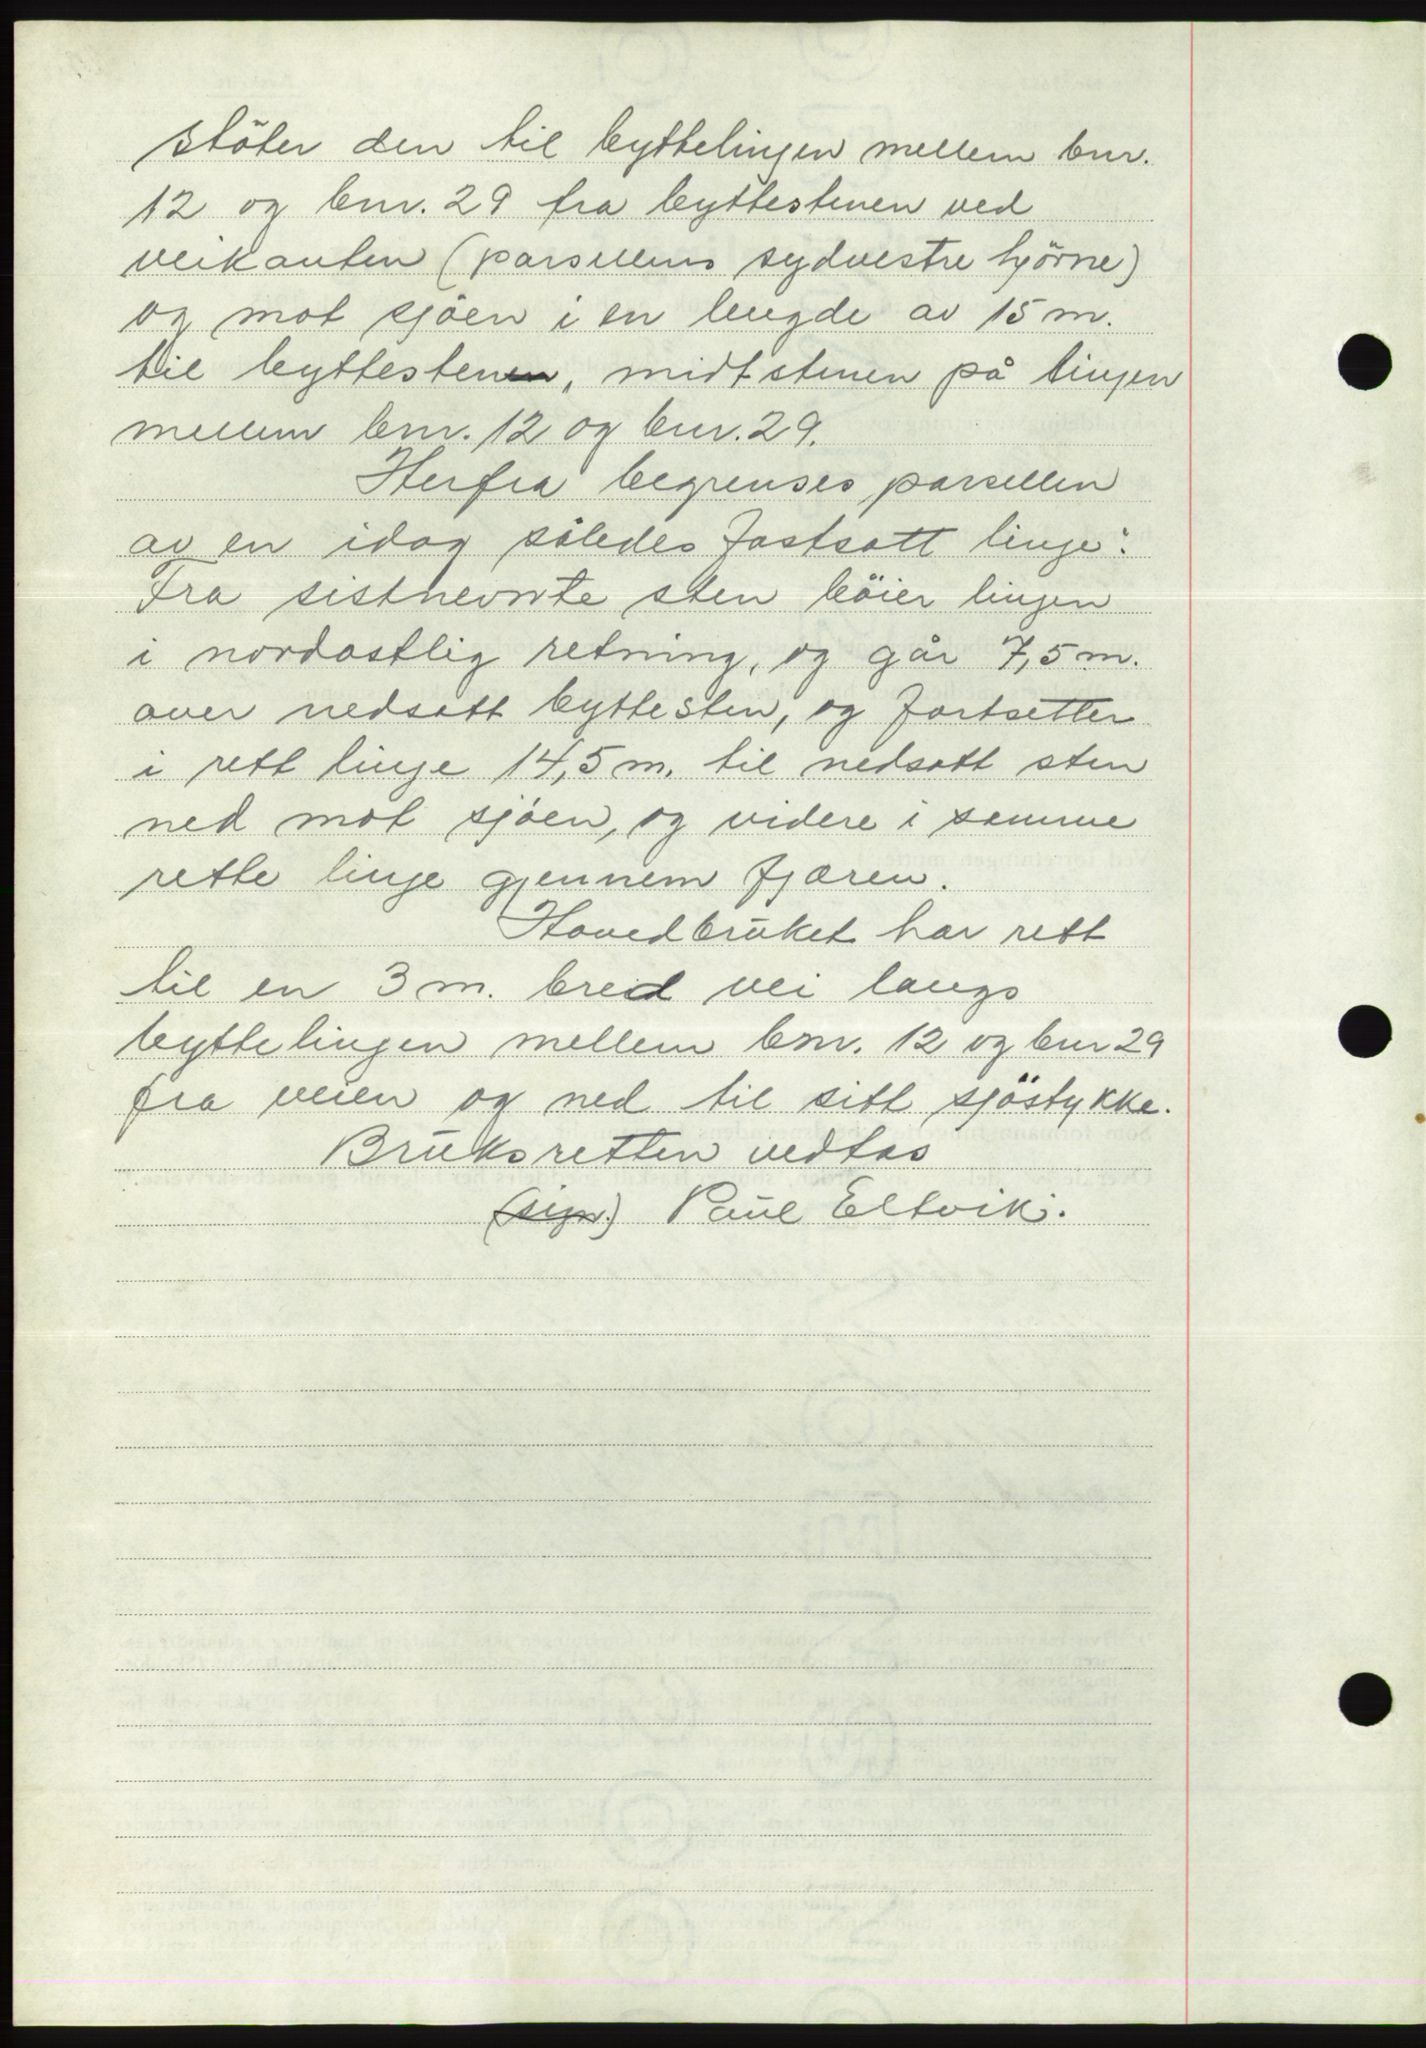 stöter den til byttelinjen mellem bnr.
12 og bnr. 29 fra byttestenen ved
veikanten (parsellens sydvestre hjörne)
og mot sjöen i en lengde av 15 m.
til byttestenen, midtstenen på linjen
mellem bnr. 12 og bnr. 29.
Herfra begrenses parsellen
av en idag således fastsatt linje:
Fra sistnevnte sten böier linjen
i nordostlig retning, og går 7,5 m.
over nedsatt byttesten, og fortsetter
i rett linje 14,5 m. til nedsatt sten
ned mot sjöen, og videre i samme
rette linje gjennem fjæren.
Hovedbruket har rett
til en 3 m. bred vei langs
byttelinjen mellem bnr. 12 og bnr 29
fra veien og ned til sitt sjöstykke.
Bruksretten vedtas
(sign.) Paul Eltvik.